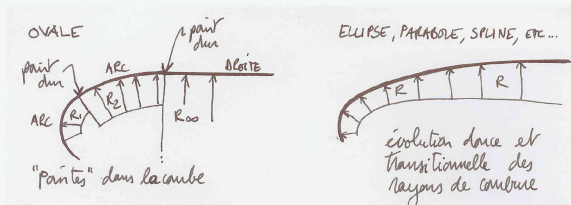 OVALE
point
dur
point
dur
ARC
DROITE
ARC
R1
R2
R∞
"pointes" dans la courbe
ELLIPSE, PARABOLE, SPLINE, ETC...
R
R
évolution douce et
transitionnelle des
rayons de courbure